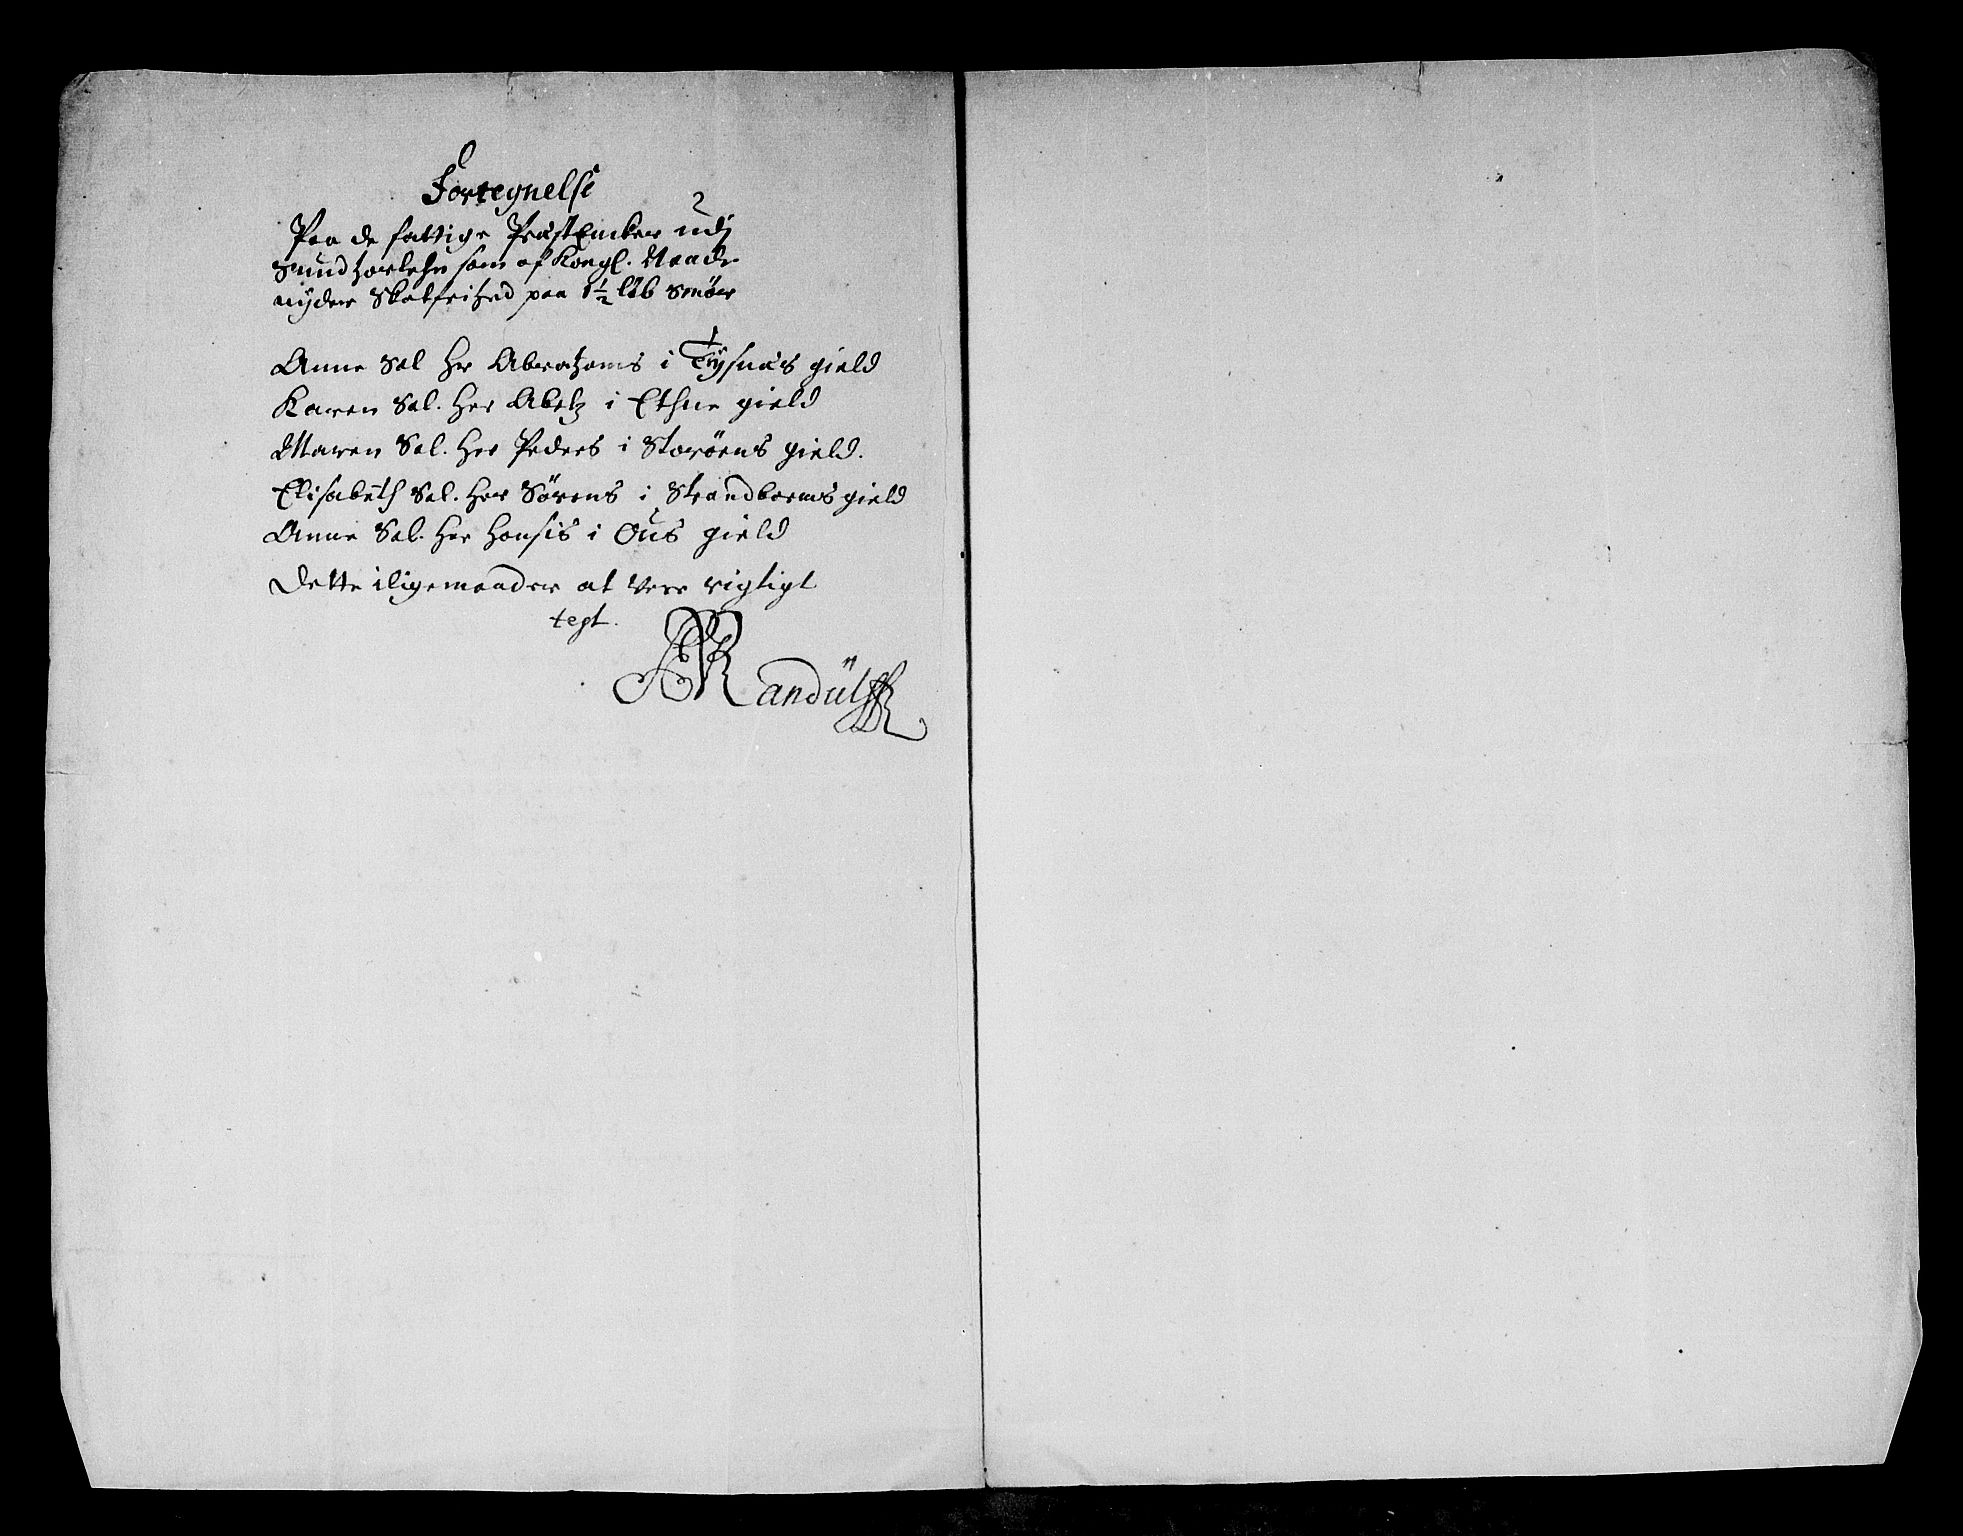 Fortegnelse
Paa de fattige PræstEncker udj
Sundhorlehn som af Kongl. Naade
nyder Skatfrihed paa 1½ løb Smør
Anne Sal Hr Abrahams i Tysnæs gield
Karen Sal. Her Abelz i Ethne gield
Maren Sal. Her Peders i Storøens gield.
Elisabeth Sal. Her Sørens i Strandbarms gield
Anne Sal. Her Hansis i Ous gield
Dette iligemaader at vere rigtigt
test.
Randulff